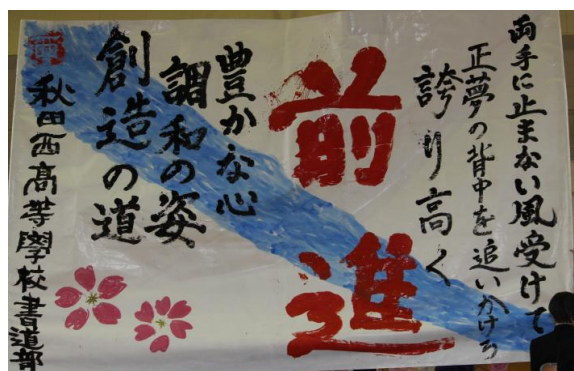 両手に止まない風受けて
正夢の背中を追いかけろ
誇り高く
前進
豊かな心
調和の姿
創造の道
秋田西高等學校書道部